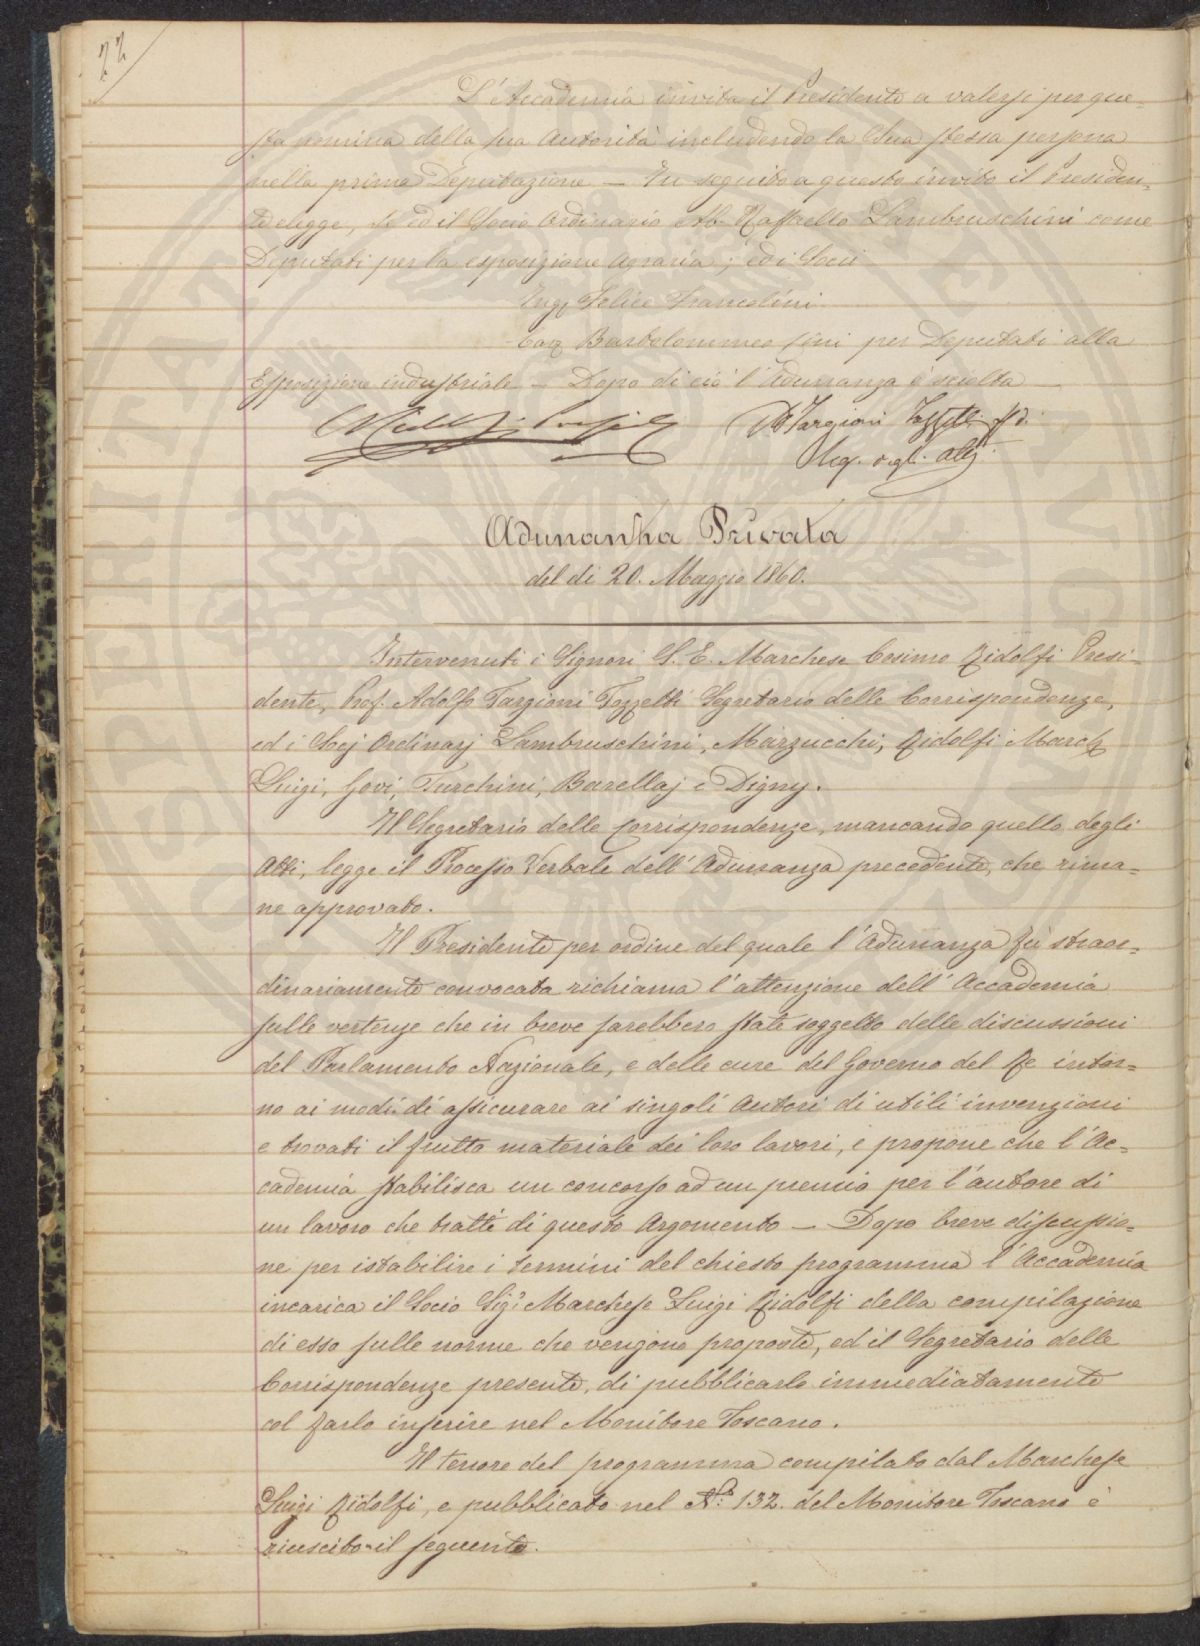 22
L'Accademia invita il Presidente a valersi per que-
sta nomina della sua Autorità includendo la Sua stessa persona
nella prima Deputazione — In seguito a questo invito il Presiden-
te elegge, Se ed il Socio Ordinario Ab. Raffaello Lambruschini come
Deputati per la esposizione Agraria; ed i Socii
Ingr Felice Francolini
Cav. Bartolommeo Cini per Deputati alla
Esposizione industriale — Dopo di ciò l'Adunanza è sciolta
A. Targioni Tozzetti ff. di
Seg. degli Atti
Adunanza Privata
del dì 20. Maggio 1860.
Intervenuti i Signori S. E. Marchese Cosimo Ridolfi Presi-
dente, Prof. Adolfo Targioni Tozzetti Segretario delle Corrispondenze,
ed i Socj Ordinarj Lambruschini, Marzucchi, Ridolfi March.
Luigi, Govi, Turchini, Barellaj e Digny.
Il Segretario delle Corrispondenze, mancando quello degli
Atti, legge il Processo Verbale dell'Adunanza precedente, che rima=
ne approvato.
Il Presidente per ordine del quale l'Adunanza fù straor=
dinariamente convocata richiama l'attenzione dell'Accademia
sulle vertenze che in breve sarebbero state soggetto delle discussioni
del Parlamento Nazionale, e delle cure del Governo del Re intor=
no ai modi di assicurare ai singoli Autori di utili invenzioni
e trovati il frutto materiale dei loro lavori, e propone che l'Ac=
cademia stabilisca un concorso ad un premio per l'autore di
un lavoro che tratti di questo Argomento — Dopo breve discussio=
ne per istabilire i termini del chiesto programma l'Accademia
incarica il Socio Sigr Marchese Luigi Ridolfi della compilazione
di esso sulle norme che vengono proposte, ed il Segretario delle
Corrispondenze presente, di pubblicarle immediatamente
col farlo inserire nel Monitore Toscano.
Il tenore del programma compilato dal Marchese
Luigi Ridolfi, e pubblicato nel No. 132. del Monitore Toscano è
riuscito il seguente.